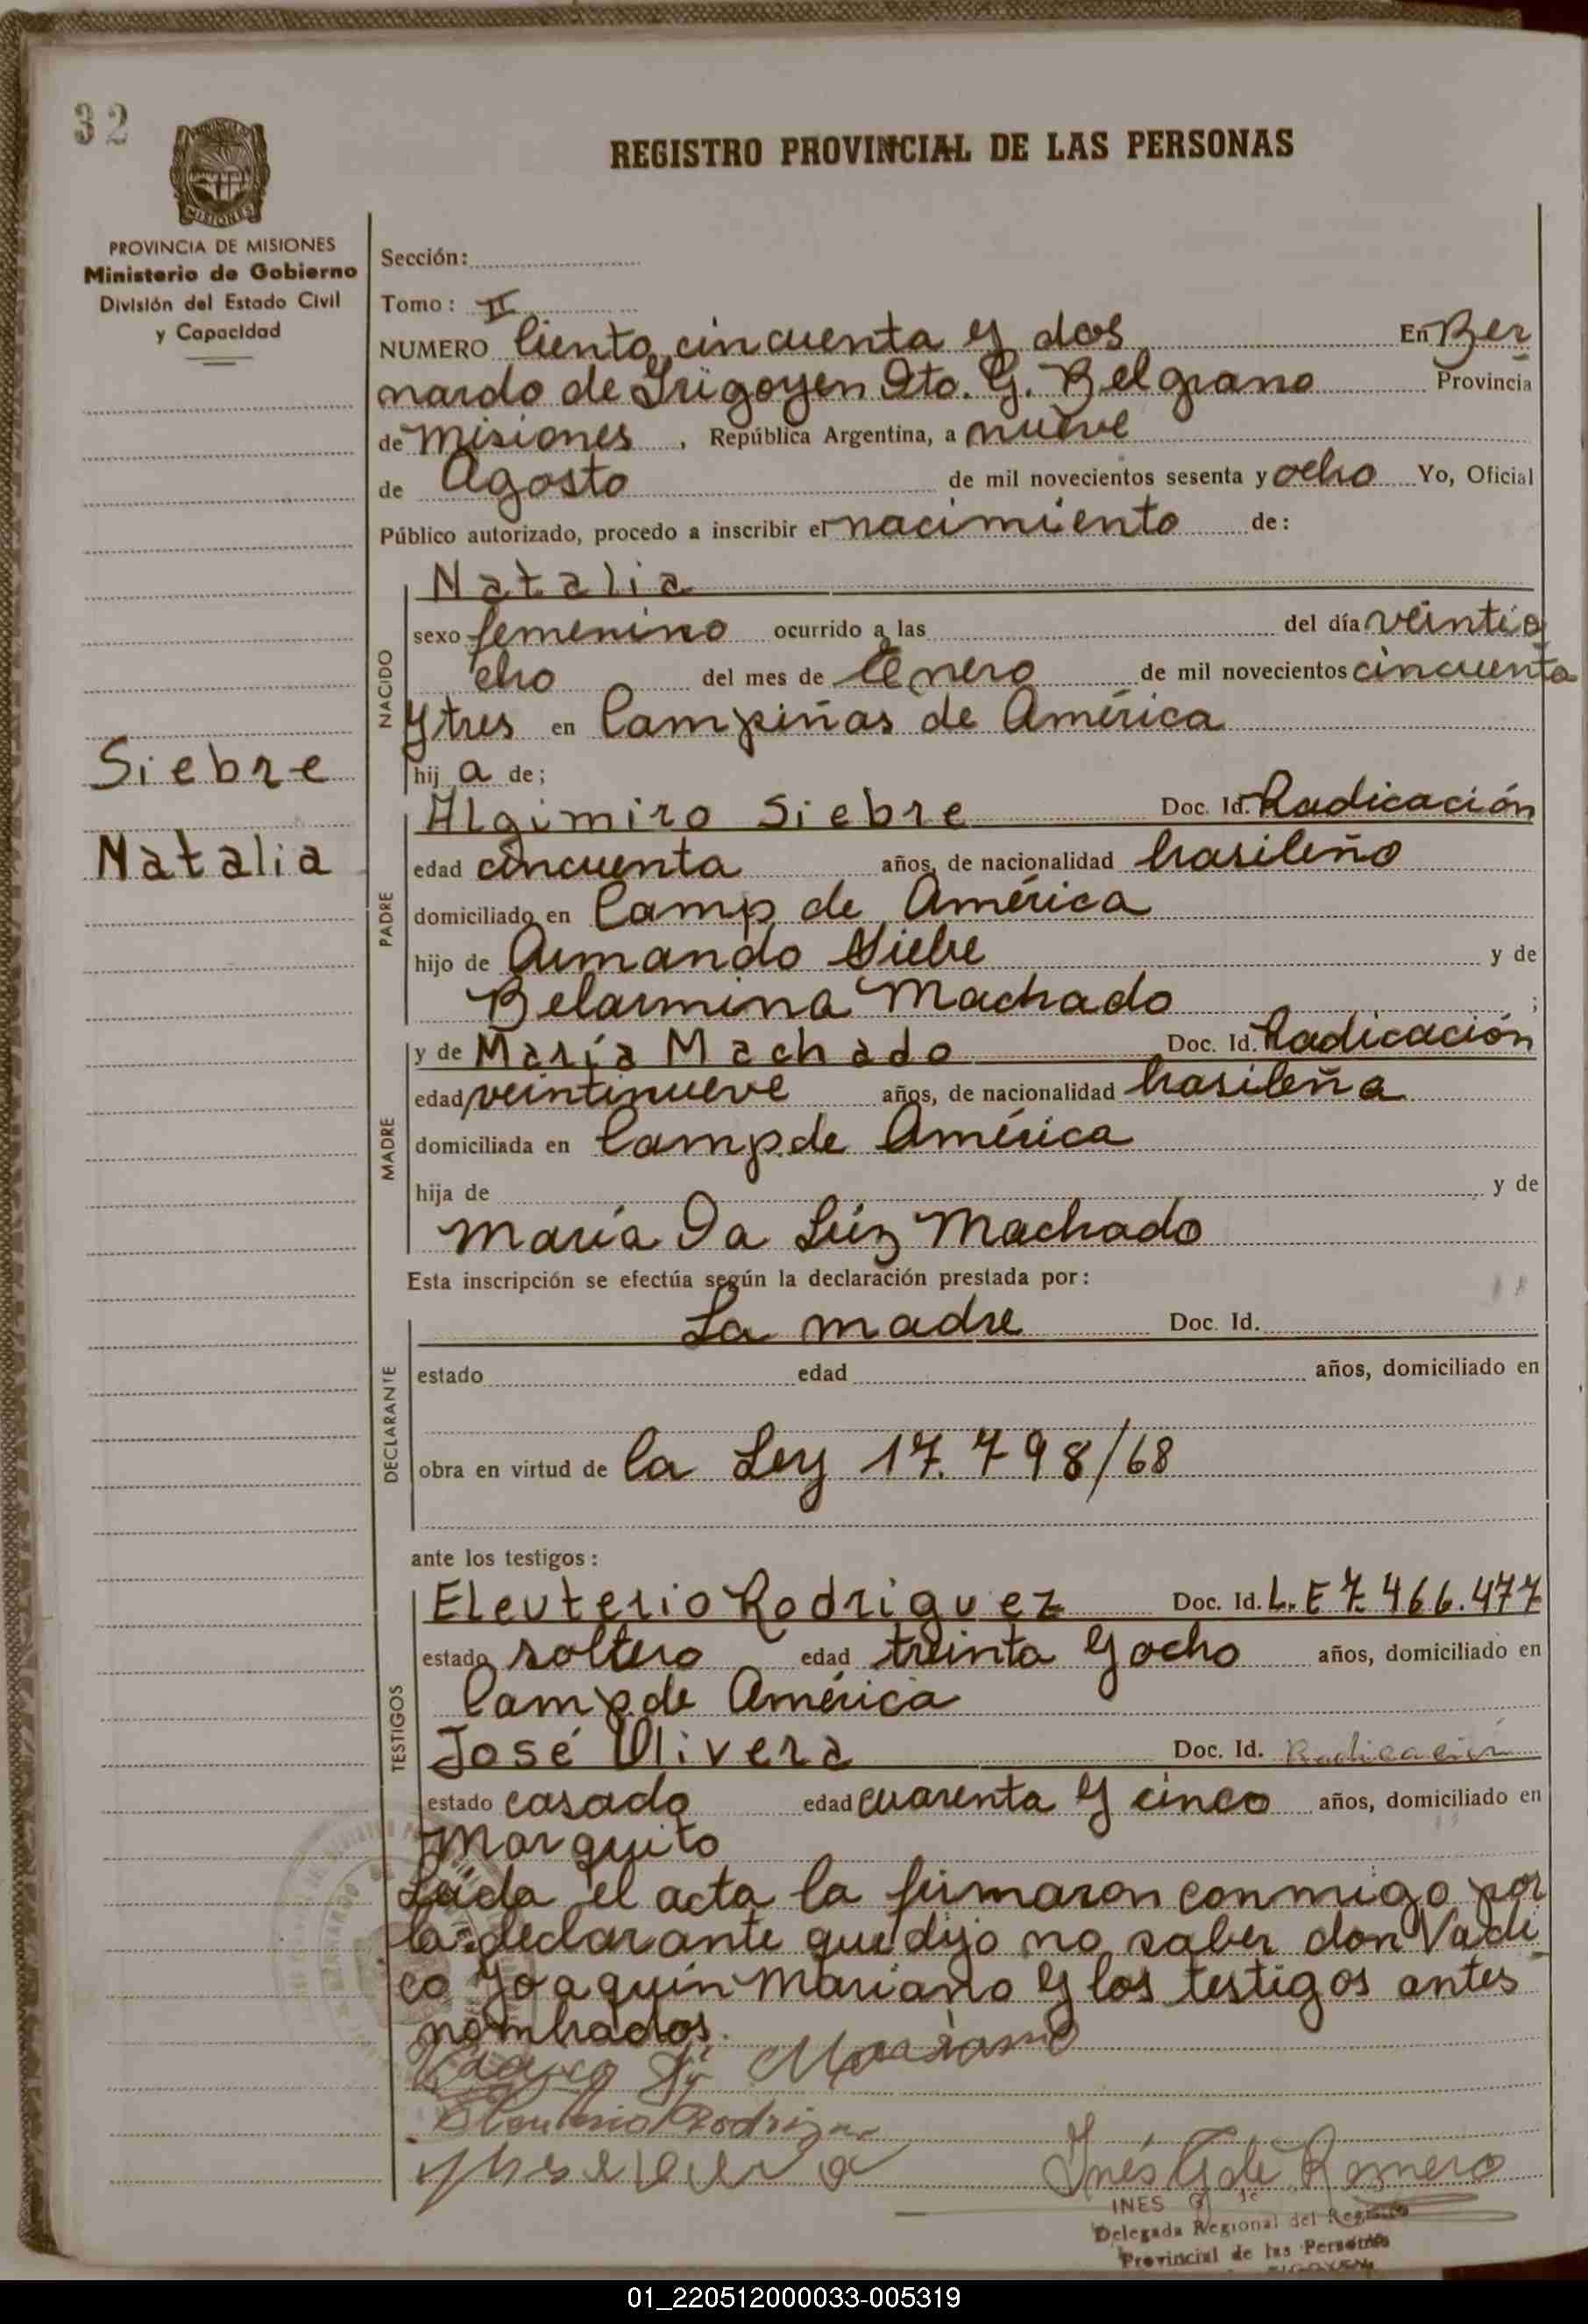 32
REGISTRO PROVINCIAL DE LAS PERSONAS
MISIONES
PROVINCIA DE MISIONES
Ministerio de Gobierno
División del Estado Civil
y Capacidad
Sección:
Tomo: II
NUMERO Ciento cincuenta y dos En Ber
nardo de Irigoyen Dto. G. Belgrano Provincia
de Misiones, República Argentina, a nueve
de Agosto de mil novecientos sesenta y ocho Yo, Oficial
Público autorizado, procedo a inscribir el nacimiento de:
Natalia
NACIDO
sexo femenino ocurrido a las del día veintio
cho del mes de Enero de mil novecientos cincuenta
y tres en Campiñas de América
Siebre
Natalia
hij a de;
Algimiro Siebre Doc. Id. Radicación
PADRE
edad cincuenta años, de nacionalidad brasileño
domiciliado en Camp de América
hijo de Armando Siebre y de
Belarmina Machado;
y de María Machado Doc. Id. Radicación
MADRE
edad veintinueve años, de nacionalidad brasileña
domiciliada en Camp. de América
hija de y de
María Da Lúz Machado
Esta inscripción se efectúa según la declaración prestada por:
La madre Doc. Id.
DECLARANTE
estado edad años, domiciliado en
obra en virtud de la Ley 17.798/68
ante los testigos:
Eleuterio Rodriguez Doc. Id. L.E 7.466.477
TESTIGOS
estado soltero edad treinta y ocho años, domiciliado en
Camp. de América
José Olivera Doc. Id. Radicación
estado casado edad cuarenta y cinco años, domiciliado en
Marquito
Leida el acta la firmaron conmigo por
la declarante que dijo no saber don Vadi
co Joaquín Mariano y los testigos antes
nombrados.
Mariano
Eleuterio Rodriguez
Inés G de Romero
INES G
Delegada Regional del Registro
Provincial de las Personas
01_220512000033-005319